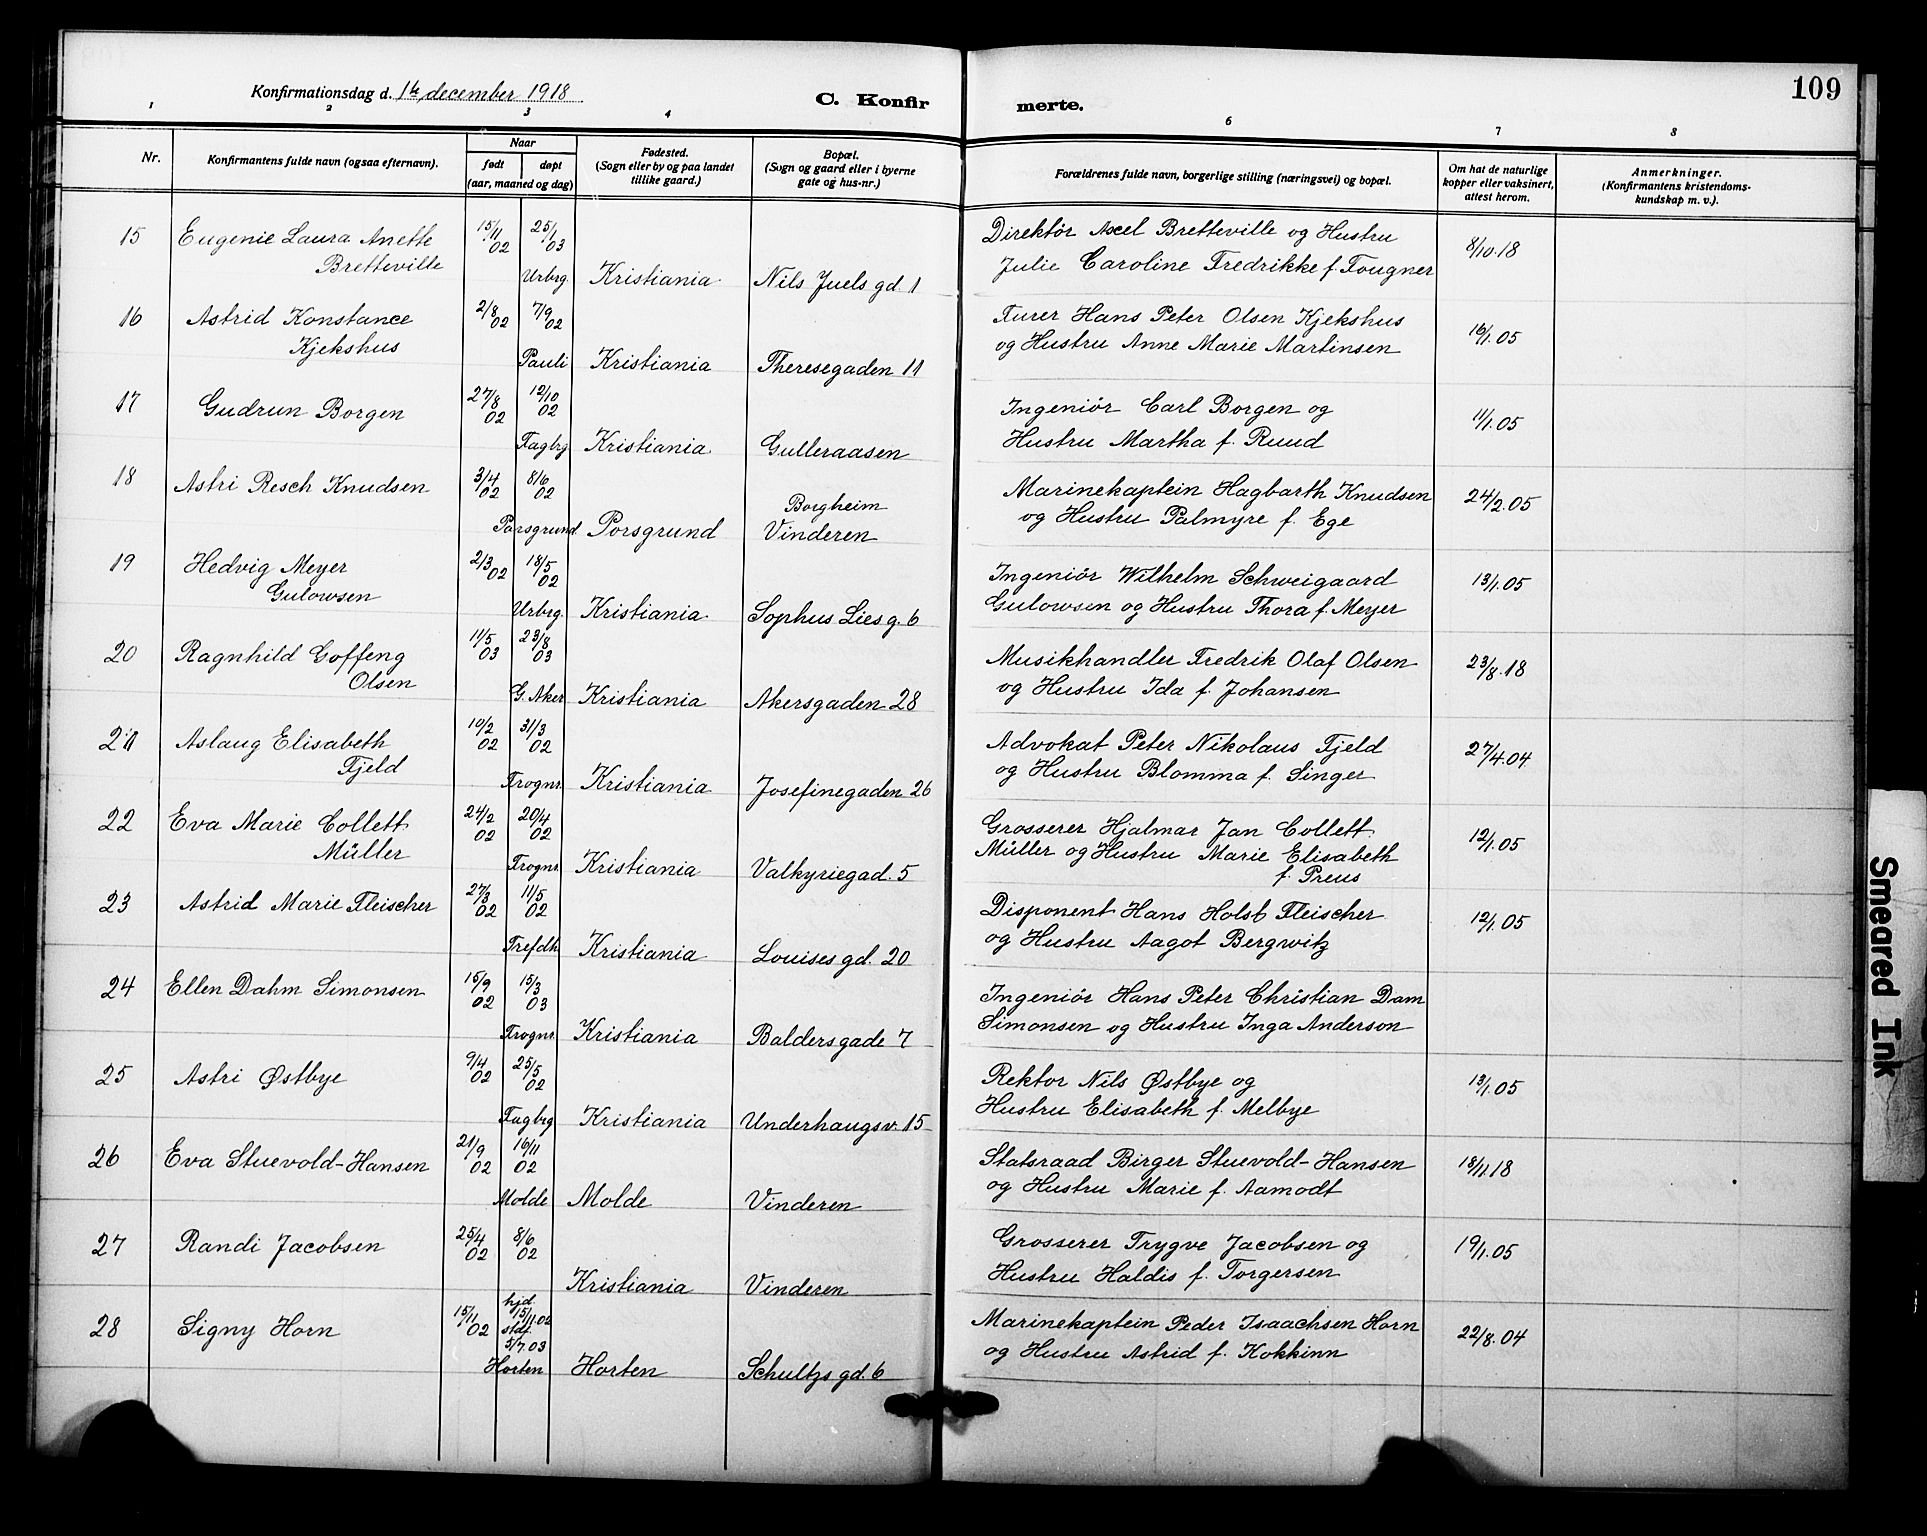 109
Konfirmationsdag d. 1ste december 1918
C. Konfirmerte.
1 2 3 4 6 7 8
Nr. Konfirmantens fulde navn (ogsaa efternavn). Naar født døpt (aar, maaned og dag) Fødested. (Sogn eller by og paa landet tillike gaard.) Bopæl. (Sogn og gaard eller i byerne gate og hus-nr.) Forældrenes fulde navn, borgerlige stilling (næringsvei) og bopæl. Om hat de naturlige kopper eller vaksinert, attest herom. Anmerkninger. (Konfirmantens kristendoms-kundskap m. v.).
15 Eugenie Laura Anette 15/11 02 25/1 03 Direktör Axel Bretteville og Hustru 8/10.18
Bretteville Urbrg. Kristiania Nils Juels gd. 1 Julie Caroline Fredrikke f. Tougner
16 Astrid Konstance 2/8 02 7/9 02 Furer Hans Peter Olsen Kjekshus 16/1.05
Kjekshus Pauli Kristiania Theresegaden 11 og Hustru Anne Marie Martinsen
17 Gudrun Borgen 27/8 02 12/10 02 Ingeniör Carl Borgen og 11/1.05
Fagbrg Kristiania Gulleraasen Hustru Martha f. Ruud
18 Astri Resch Knudsen 3/4 02 8/6 02 Borgheim Marinekaptein Hagbarth Knudsen 24/2.05
Porsgrund Porsgrund Vinderen og Hustru Palmyre f. Ege
19 Hedvig Meyer 2/3 02 18/5 02 Ingeniör Wilhelm Schweigaard 13/1.05
Gulowsen Urbrg. Kristiania Sophus Lies g. 6 Gulowsen og Hustru Thora f. Meyer
20 Ragnhild Goffeng 11/5 03 23/8 03 Musikhandler Fredrik Olaf Olsen 23/8.18
Olsen G. Aker Kristiania Akersgaden 28 og Hustru Ida f. Johansen
21 Aslaug Elisabeth 10/2 02 31/3 02 Advokat Peter Nikolaus Fjeld 27/4.04
Fjeld Frognr. Kristiania Josefinegaden 26 og Hustru Blomma f. Singer
22 Eva Marie Collett 24/2 02 20/4 02 Grosserer Hjalmar Jan Collett 12/1.05
Müller Frognr. Kristiania Valkyriegad. 5 Müller og Hustru Marie Elisabeth
f. Preus
23 Astrid Marie Fleischer 27/3 02 11/5 02 Disponent Hans Holst Fleischer 12/1.05
Trefdh. Kristiania Louises gd. 20 og Hustru Aagot Bergwitz
24 Ellen Dahm Simonsen 15/9 02 15/3 03 Ingeniör Hans Peter Christian Dam
Frognr. Kristiania Baldersgade 7 Simonsen og Hustru Inga Anderson
25 Astri Østbye 9/4 02 25/5 02 Rektor Nils Østbye og 13/1.05
Fagbrg Kristiania Underhaugsv. 15 Hustru Elisabeth f. Melbye
26 Eva Stuevold-Hansen 21/9 02 16/11 02 Statsraad Birger Stuevold-Hansen 18/11.18
Molde Molde Vinderen og Hustru Marie f. Aamodt
27 Randi Jacobsen 25/4 02 8/6 02 Grosserer Trygve Jacobsen og 19/1.05
Kristiania Vinderen Hustru Haldis f. Torgersen
28 Signy Horn 15/11 02 hjd. 15/11 02 stdf. 5/7.03 Marinekaptein Peder Isaachsen Horn 22/8.04
Horten Horten Schultzs gd. 6 og Hustru Astrid f. Kokkinn
Smeared Ink